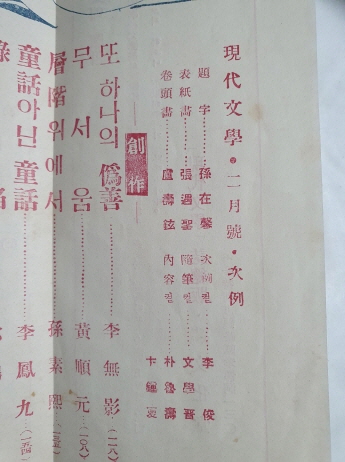 現代文學・二月號・次例
題字……孫在馨 次例컽……李俊
表紙畵……張遇聖 隨筆컽……文學晋
卷頭畵……盧壽鉉 內容컽……朴魯壽
卞
創作
또 하나의 僞善……李無影(一二八)
무서움……黃順元(一〇八)
層階위에서……孫素熙
童話아닌 童話……李鳳九(一五四)